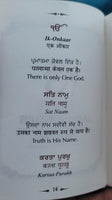 ੴ
Ik-Onkaar
एक ओंकार
ਪ੍ਰਮਾਤਮਾ ਕੇਵਲ ਇੱਕ ਹੈ।
परमात्मा केवल एक है।
There is only One God.
ਸਤਿ ਨਾਮੁ
सति नामु
Sat Naam
ਉਸਦਾ ਨਾਮ ਸਦੀਵੀ ਸੱਚ ਹੈ।
उसका नाम शाश्वत रूप से सत्य है।
Truth is His Name.
ਕਰਤਾ ਪੁਰਖੁ
करता पुरखु
Kartaa Purakh
14